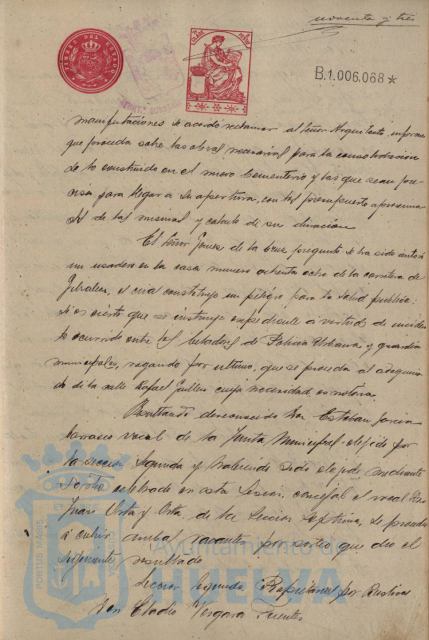 noventa y tres
B.1.006,068*
manifestaciones se acordó reclamar al Señor Arquitecto, informe
que proceda sobre las obras necesarias para la consolidacion
de lo construido en el nuevo Cementerio y las que sean pre-
cisas para llegar a su apertura, con los presupuestos aproxima-
dos de las mismas y cálculo de su duracion
El Señor de la pregunta si ha sido
un en la casa numero ochenta ocho de la carretera de
Gibraleon, el cual constituye un peligro para la salud publica;
si es cierto que se instruye expediente á virtud de inciden
lo ocurrido entre los Celadores de Policia Urbana y guardias
municipales, rogando por ultimo, que se proceda al adoquina-
do de la calle Rafael Guillen cuya necesidad es notoria.
Resultando desconocido Don Esteban Garcia
Carrasco vocal de la Junta Municipal elegido por
la Seccion Segunda y habiendo sido elegido mediante
sorteo celebrado en esta Sesion, concejal el vocal Don
Juan de la Seccion Septima, se procede
á cubrir ambas vacantes por sorteo que dio el
siguiente resultado
Seccion Segunda Propietarios por Rustica
Don Eladio Vergara Fuentes
Ayuntamiento de
HUELVA